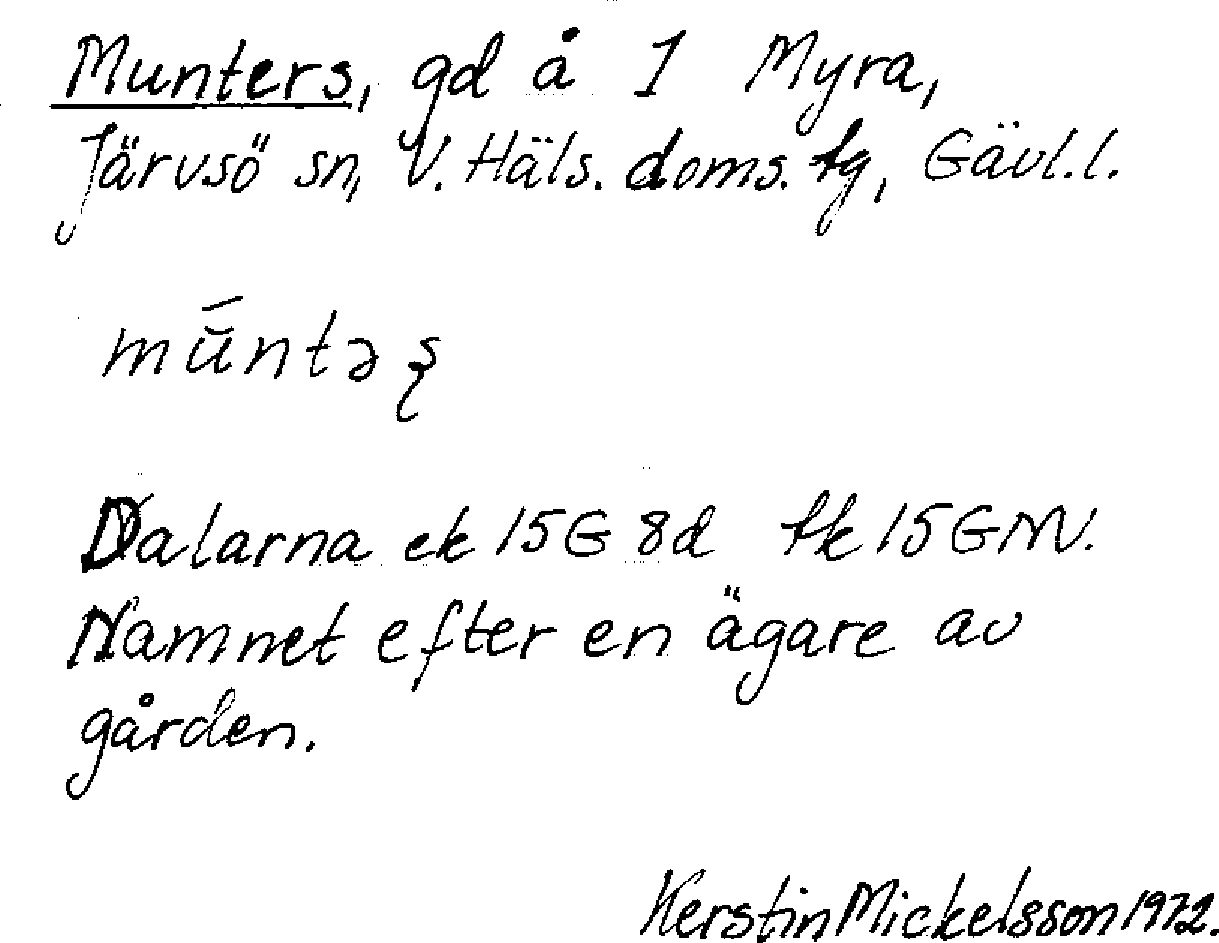 Munters, gd å 1 Myra,
Järvsö sn, V. Häls. doms. tg, Gävl.l.
mū́ntəş
Dalarna ek 15G 8d tk 15GNV.
Namnet efter en ägare av
gården.
Kerstin Mickelsson 1972.